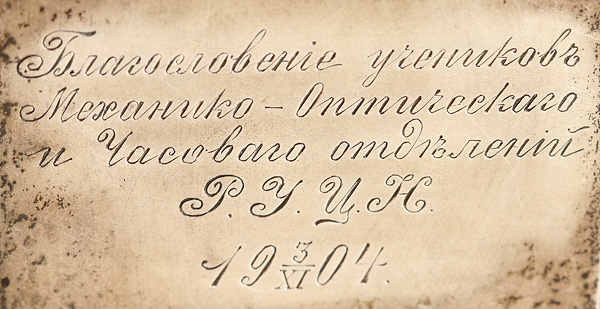 Благословеніе учениковъ
Механико-Оптическаго
и Часоваго отдѣленій
Р. У. Ц. Н.
19 3/XI 04.